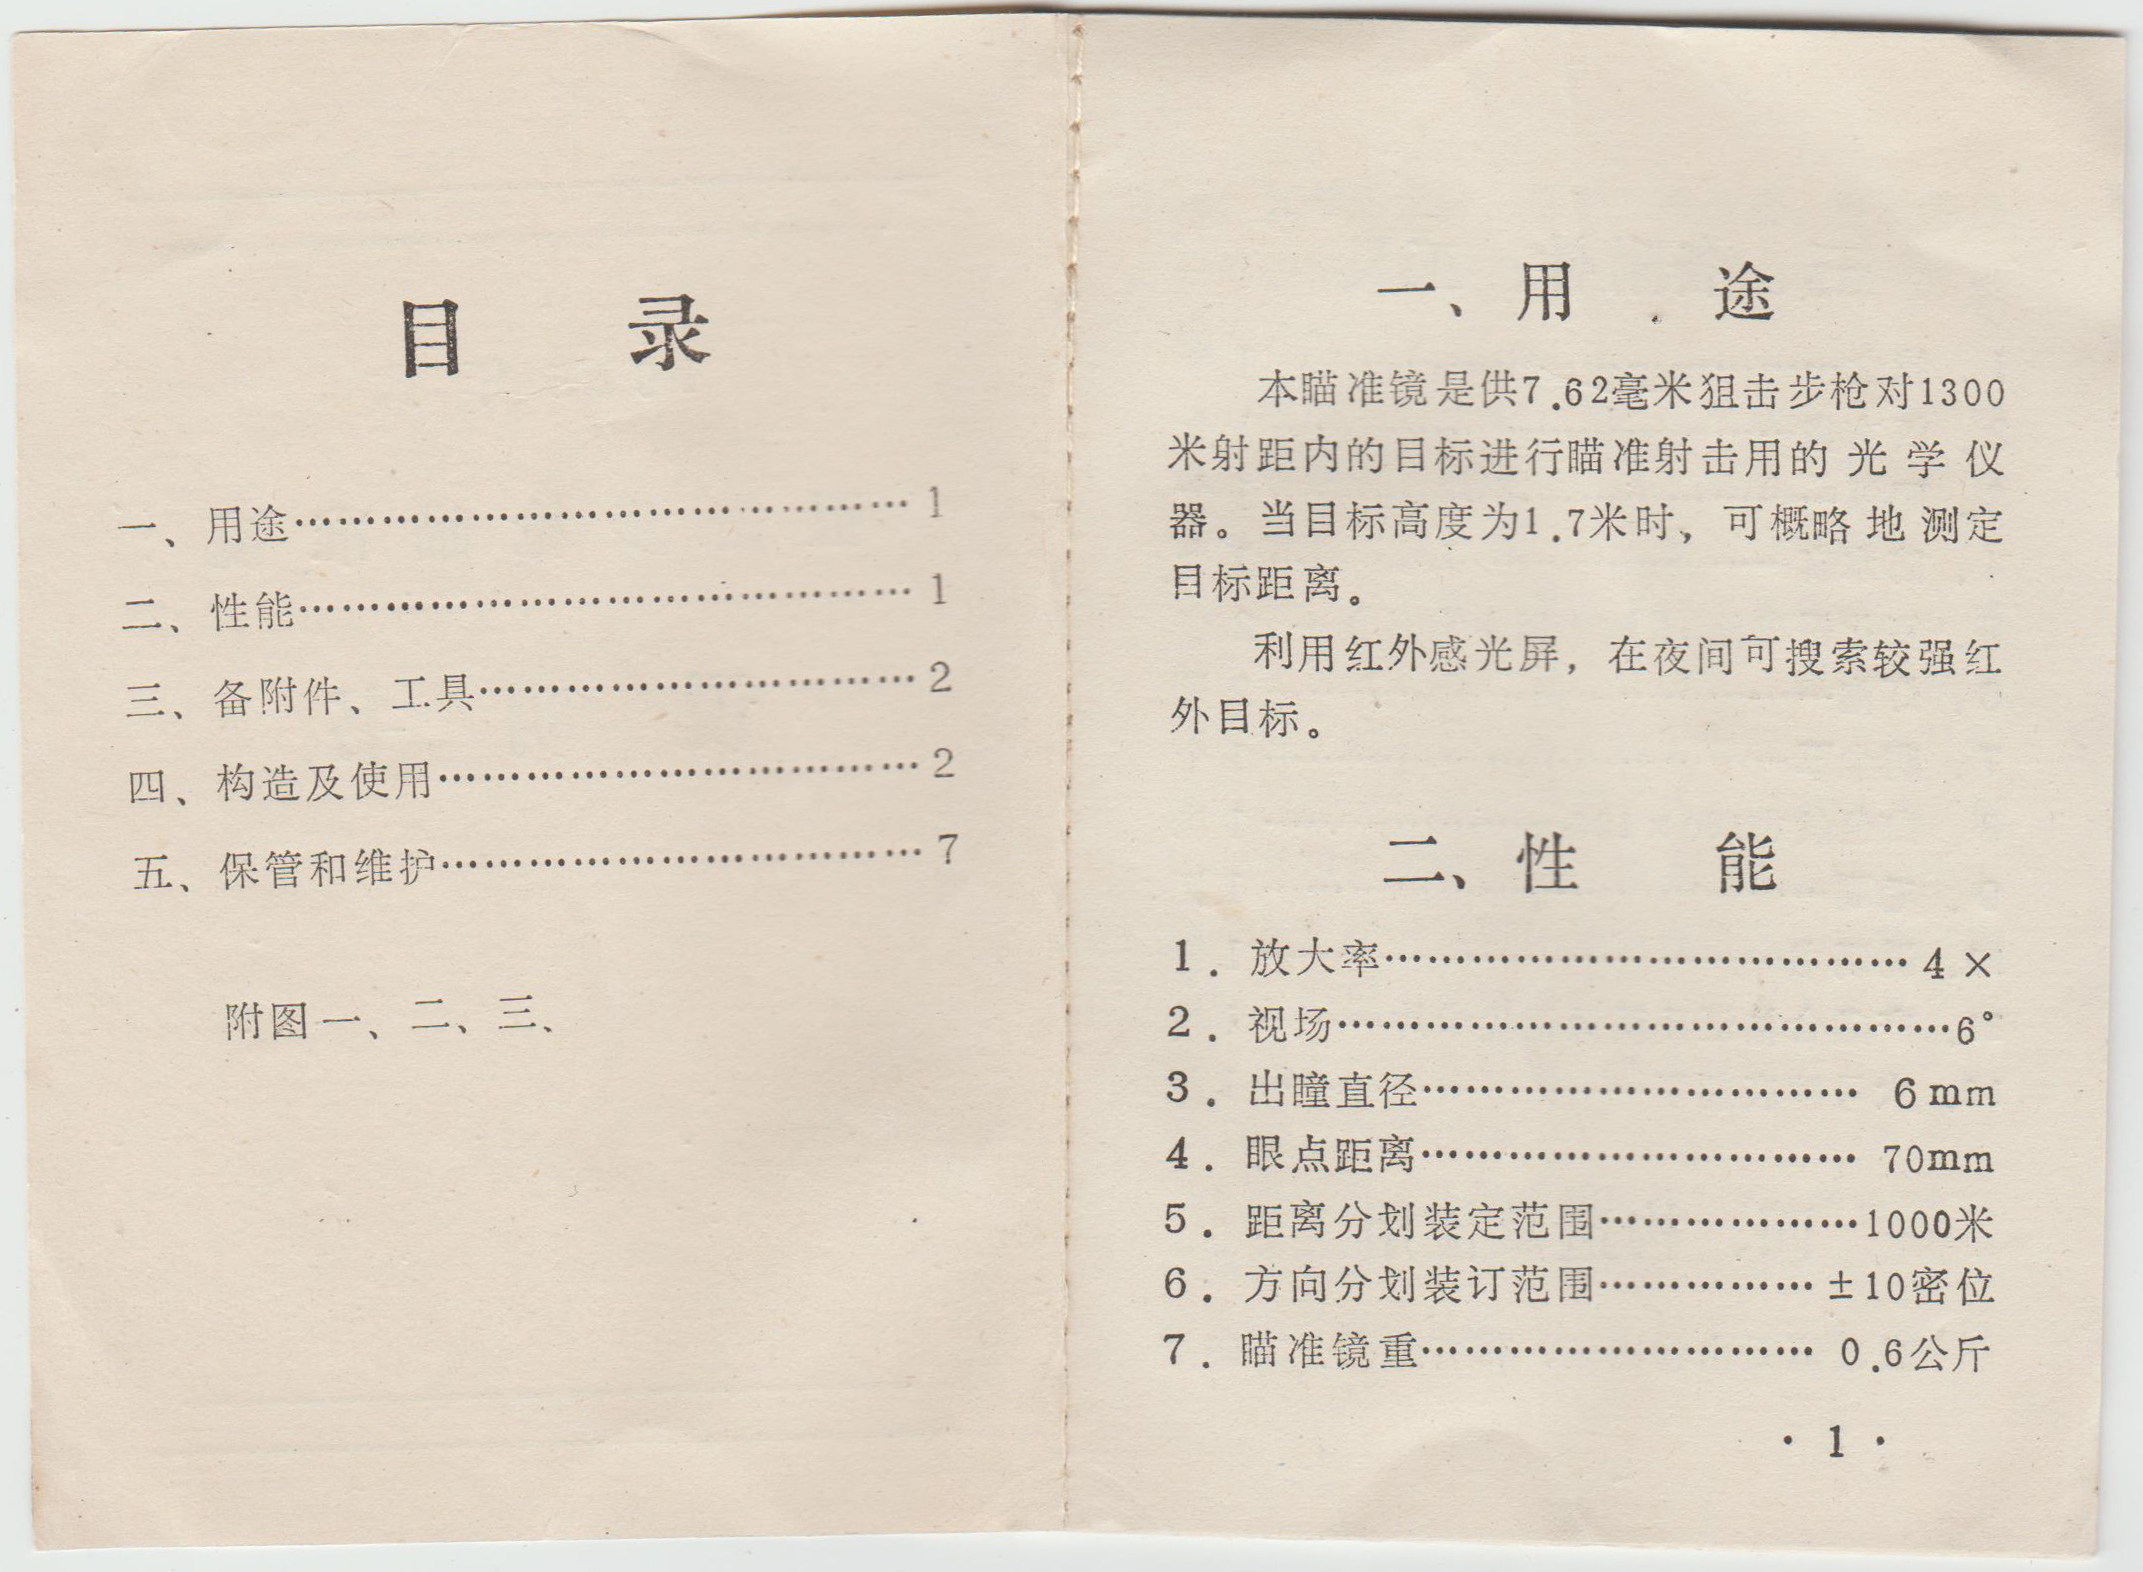 目 录
一、用途…………………………………… 1
二、性能…………………………………… 1
三、备附件、工具………………………… 2
四、构造及使用…………………………… 2
五、保管和维护…………………………… 7
附图一、二、三、
一、用 途
本瞄准镜是供7.62毫米狙击步枪对1300
米射距内的目标进行瞄准射击用的光学仪
器。当目标高度为1.7米时，可概略地测定
目标距离。
利用红外感光屏，在夜间可搜索较强红
外目标。
二、性 能
1．放大率……………………………… 4×
2．视场……………………………………6°
3．出瞳直径………………………… 6mm
4．眼点距离………………………… 70mm
5．距离分划装定范围………………1000米
6．方向分划装订范围…………… ±10密位
7．瞄准镜重……………………… 0.6公斤
· 1 ·